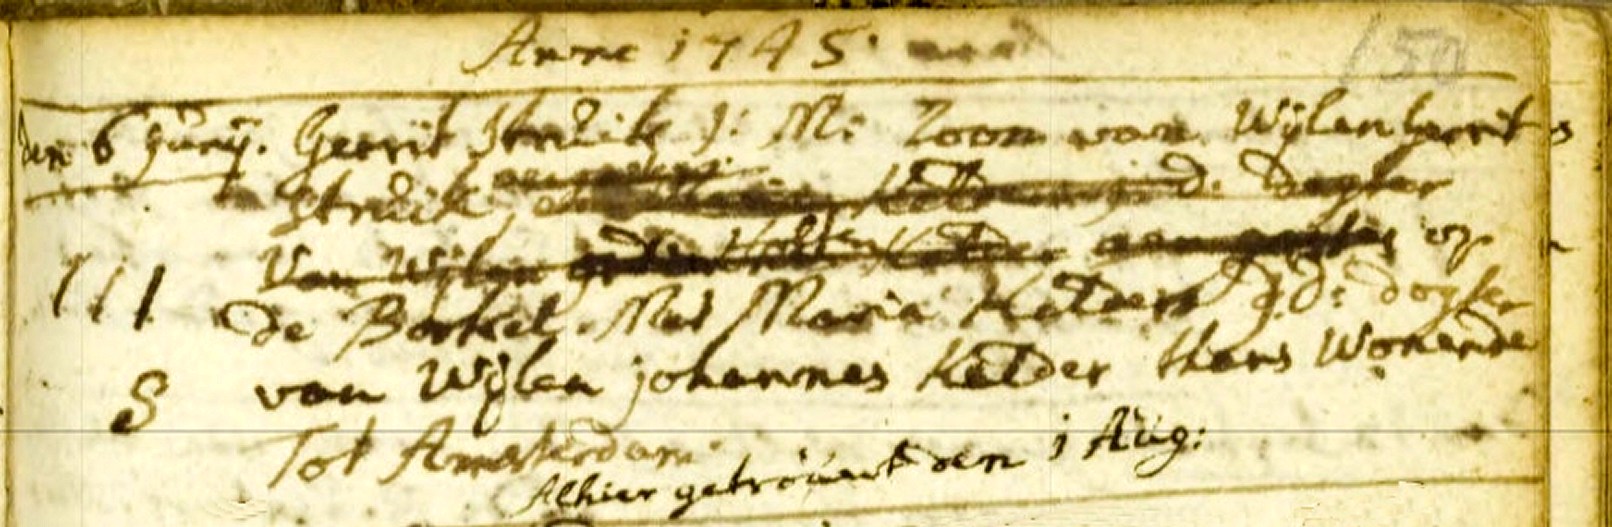 Anno 1745.
150
den 6 Junij. Gerrit Strüik J: M: Zoon van Wijlen Gerrit
Strüik, Kelder j. d. dogter
Van Wijlen Kelder op
de Borkel. Met Maria Kelder J:D: dogter
van Wijlen johannes Kelder thans Wonende
111
S
Tot Amsterdam.
Alhier getroüwt den 1 Aüg: